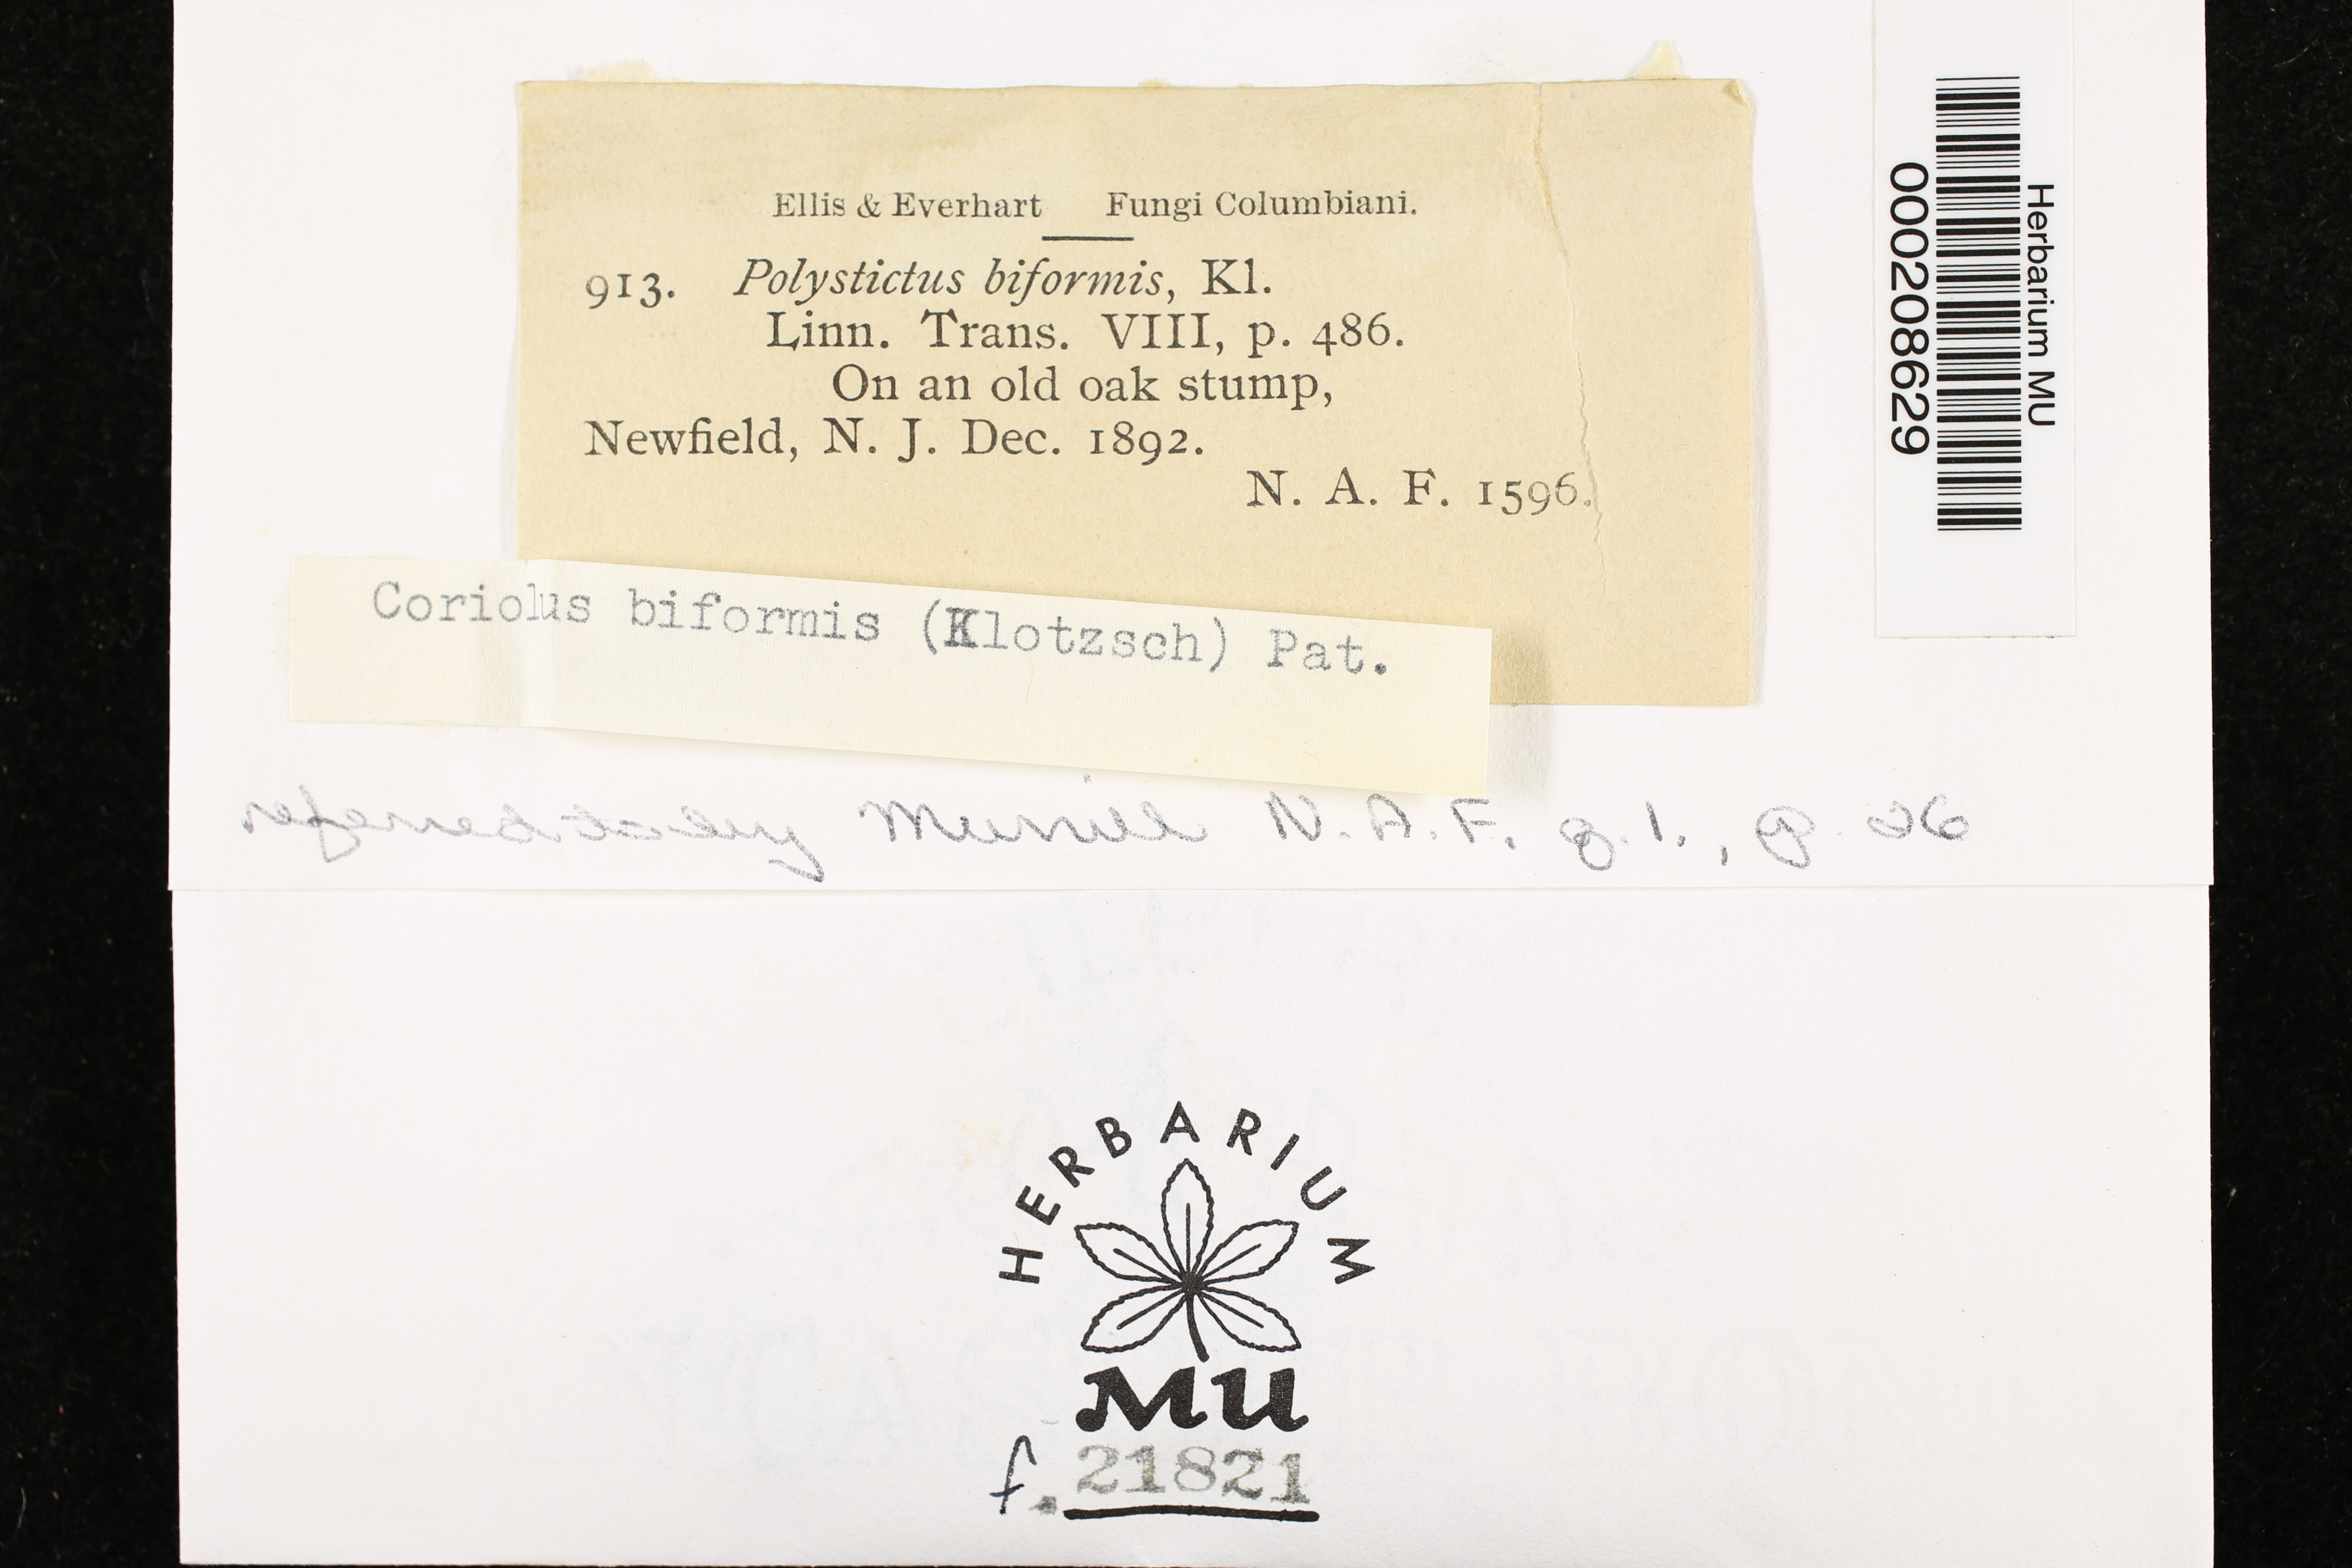 Ellis & Everhart Fungi Columbiani.
913. Polystictus biformis, Kl.
Linn. Trans. VIII, p. 486.
On an old oak stump,
Newfield, N. J. Dec. 1892.
N. A. F. 1596.
Coriolus biformis (Klotzsch) Pat.
referred to by Murrill N. A. F. 9. 1., p. 26
Herbarium MU
000208629
HERBARIUM
MU
f. 21821